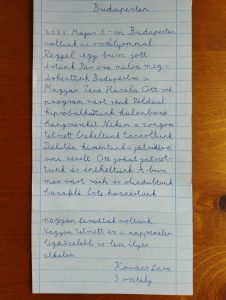 Budapesten
2025 Május 8-án Budapesten
voltunk az osztályommal
Reggel egy busz jött
értünk Pár óra mulva meg-
érkeztünk Budapestre a
Magyar Zene Házába Ott sok
program várt ránk Például
kipróbálhattunk különböző
hangszereket Nekem a zongora
tetszett Énekeltünk táncoltunk
Délután kimentünk a játszótérre
ami zenélt Ott jókat játszot-
tunk és énekeltünk A busz
már várt ránk és elindultunk
hazafelé Este hazaértünk
nagyon fáradtak voltunk
Nagyon tetszett ez a nap szerintem
legközelebb is lesz ilyen
alkalom
Kovács Lara
3 osztály